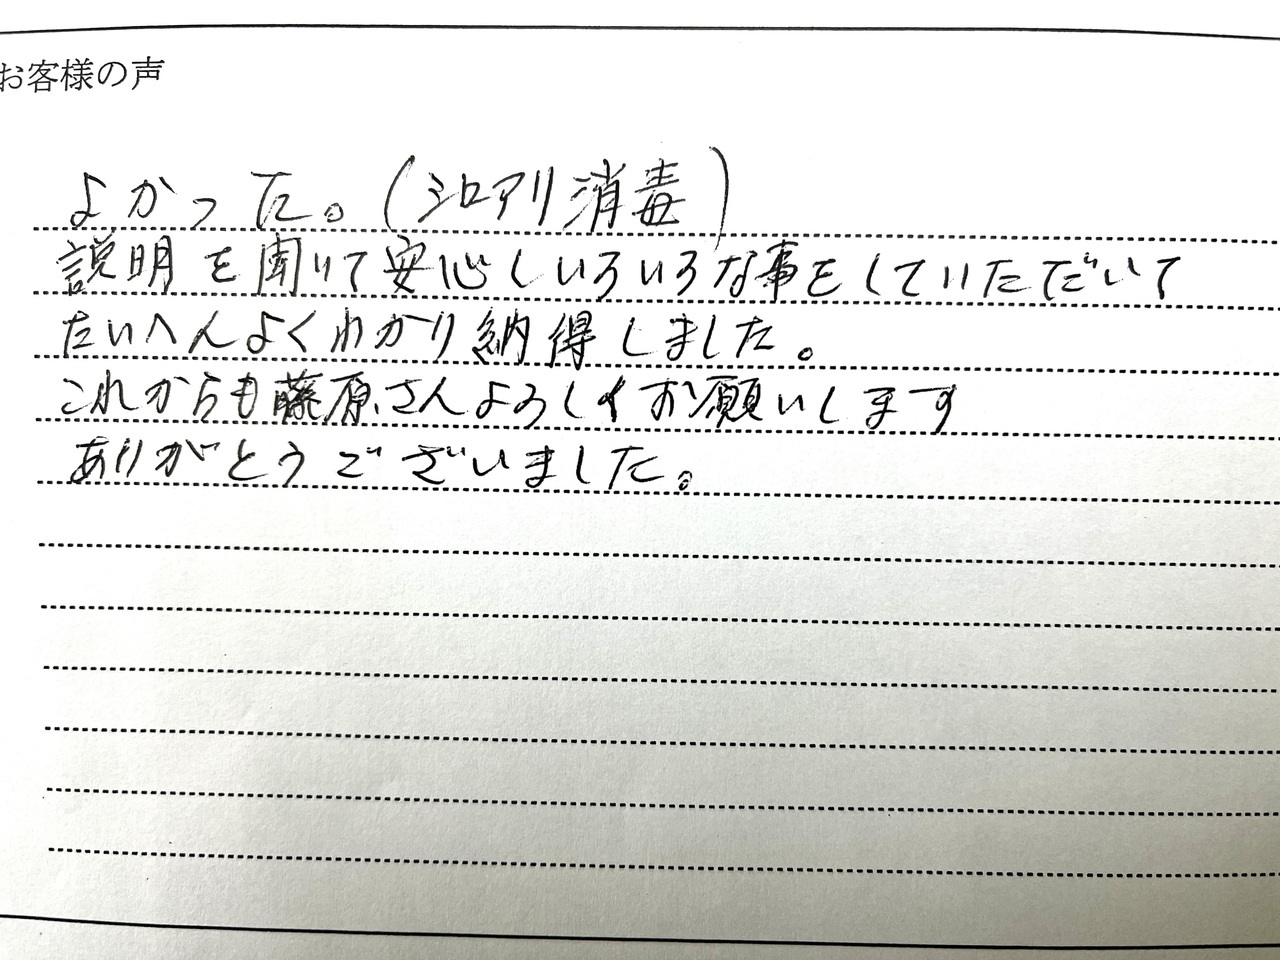 お客様の声
よかった。(シロアリ消毒)
説明を聞いて安心しいろいろな事をしていただいて
たいへんよくわかり納得しました。
これからも藤原さんよろしくお願いします
ありがとうございました。